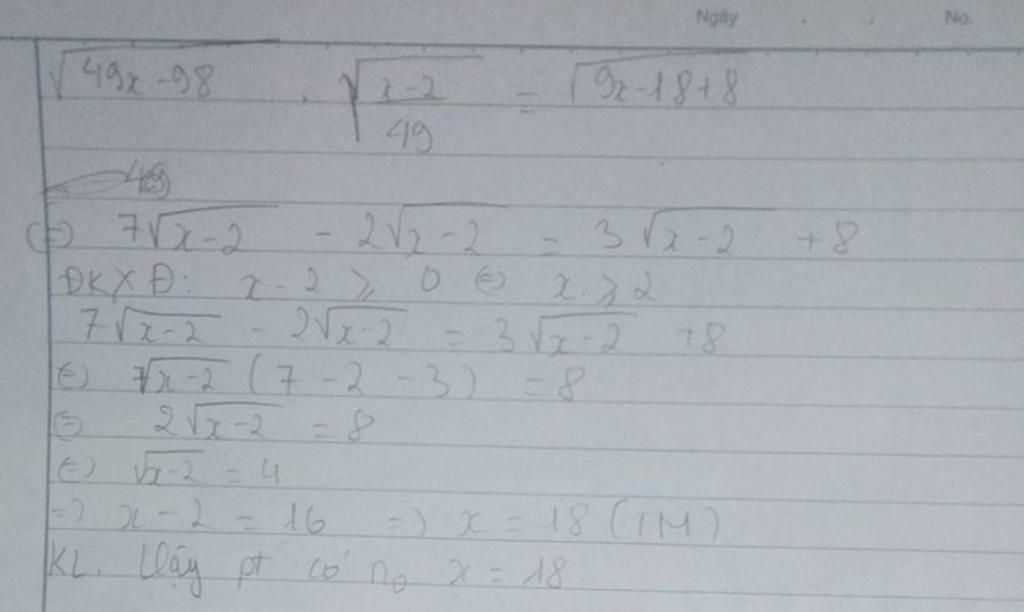 Ngày . . No.
√(49x-98) . √((x-2)/49) = √(9x-18+8)
(=) 7√(x-2) - 2√(x-2) = 3√(x-2) +8
ĐKXĐ: x-2 ≥ 0 (=) x ≥ 2
7√(x-2) - 2√(x-2) = 3√(x-2) +8
(=) √(x-2) (7-2-3) = 8
(=) 2√(x-2) = 8
(=) √(x-2) = 4
=) x-2 = 16 =) x = 18 (TM)
KL. Vậy pt có no x = 18